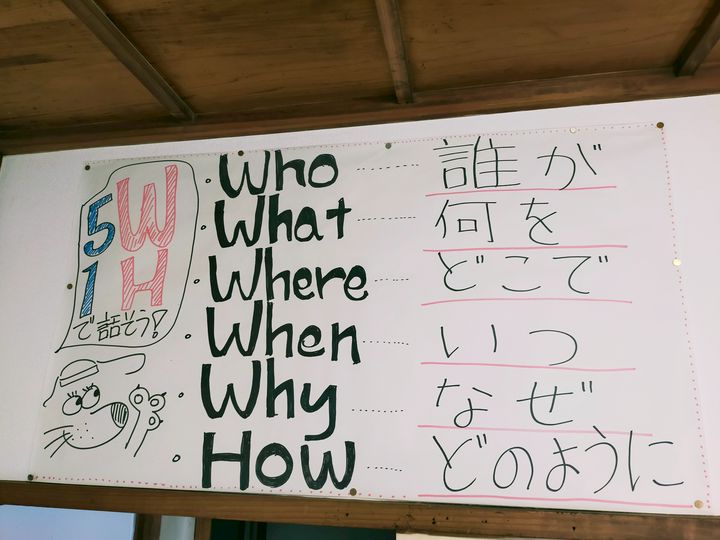 5W
1H
で話そう!
Who ........ 誰が
What ........ 何を
Where ...... どこで
When ........ いつ
Why ........ なぜ
How ...... どのように